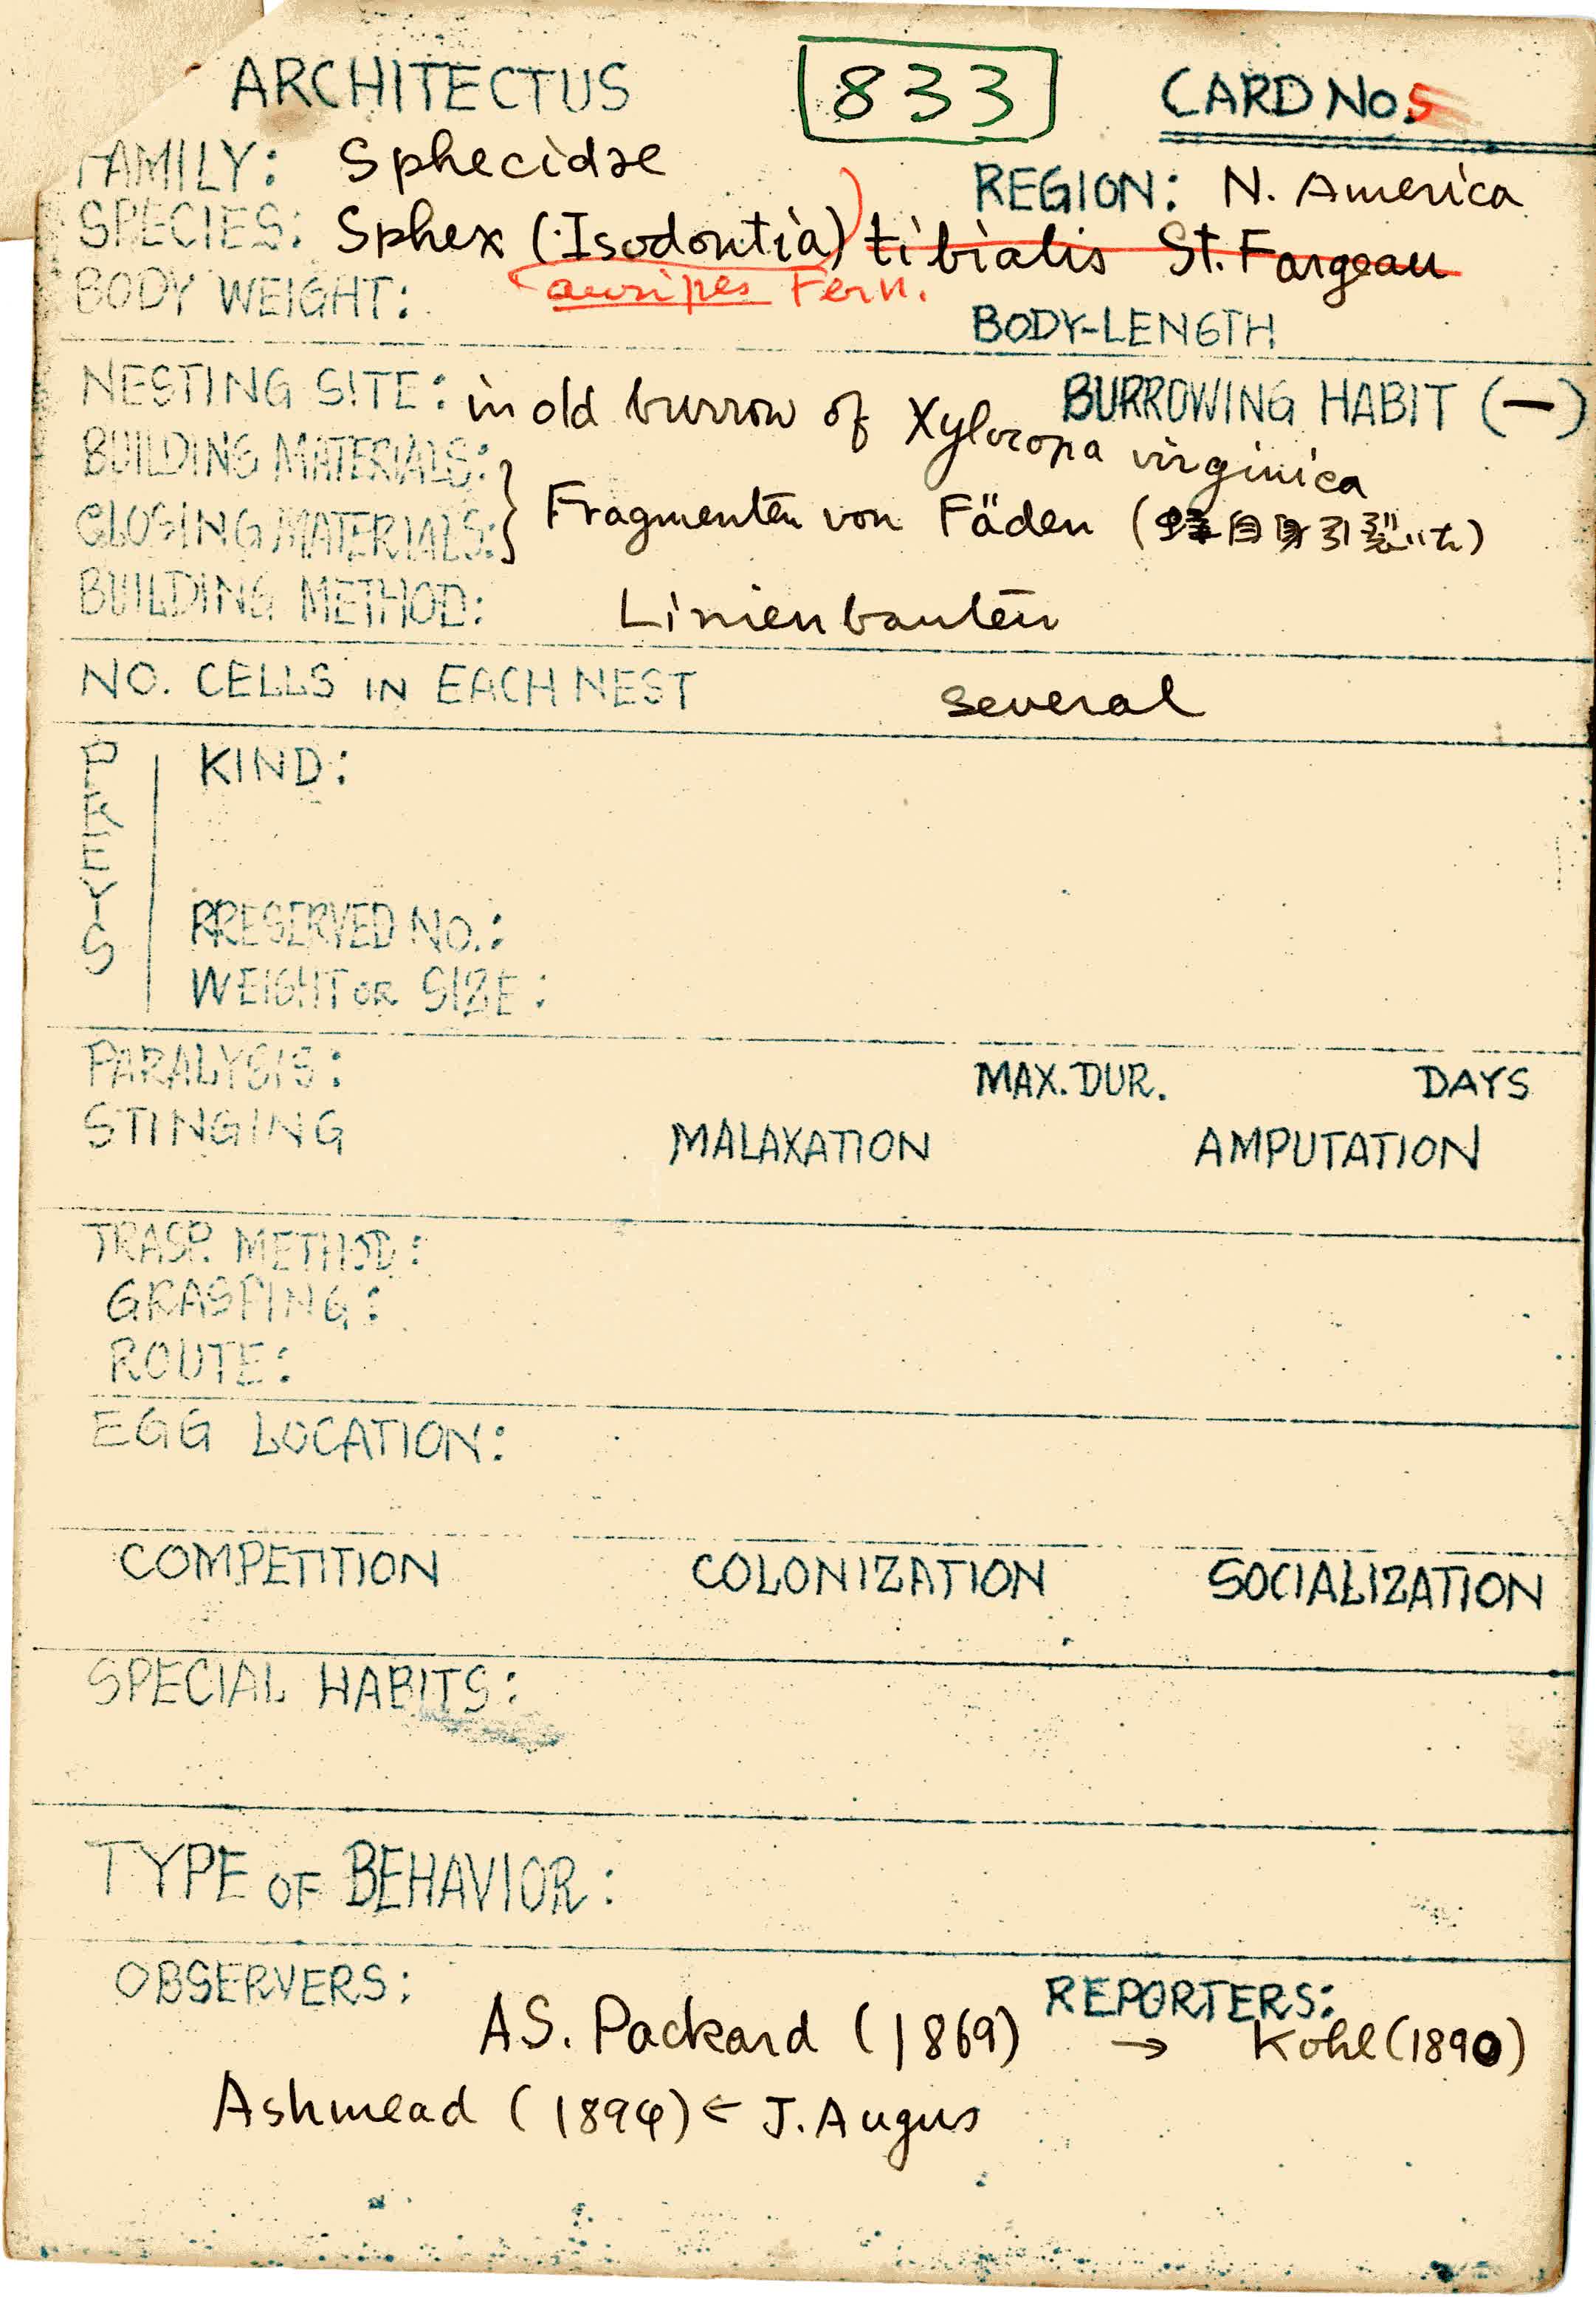 ARCHITECTUS 833 CARD NO. 5
FAMILY: Sphecidae REGION: N. America
SPECIES: Sphex (Isodontia) tibialis St. Fargeau
auripes Fern.
BODY WEIGHT: BODY-LENGTH
NESTING SITE: in old burrow of Xylocopa virginica BURROWING HABIT (—)
BUILDING MATERIALS:
CLOSING MATERIALS: } Fragmenten von Fäden (蜂自身引裂いた)
BUILDING METHOD: Linienbauten
NO. CELLS IN EACH NEST several
PREYS
KIND:
PRESERVED NO.:
WEIGHT OR SIZE:
PARALYSIS: MAX. DUR. DAYS
STINGING MALAXATION AMPUTATION
TRASP. METHOD:
GRASPING:
ROUTE:
EGG LOCATION:
COMPETITION COLONIZATION SOCIALIZATION
SPECIAL HABITS:
TYPE OF BEHAVIOR:
OBSERVERS: REPORTERS:
A.S. Packard (1869) → Kohl (1890)
Ashmead (1894) ← J. Augus